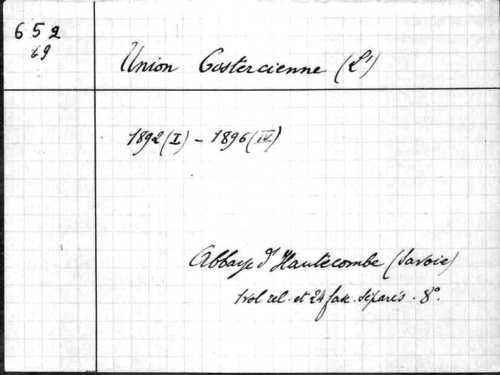 652
49
Union Cistercienne (L')
1892 (I) – 1896 (IV)
Abbaye d'Hautecombe (Savoie)
1 vol rel. et 24 fasc. séparés. 8°.